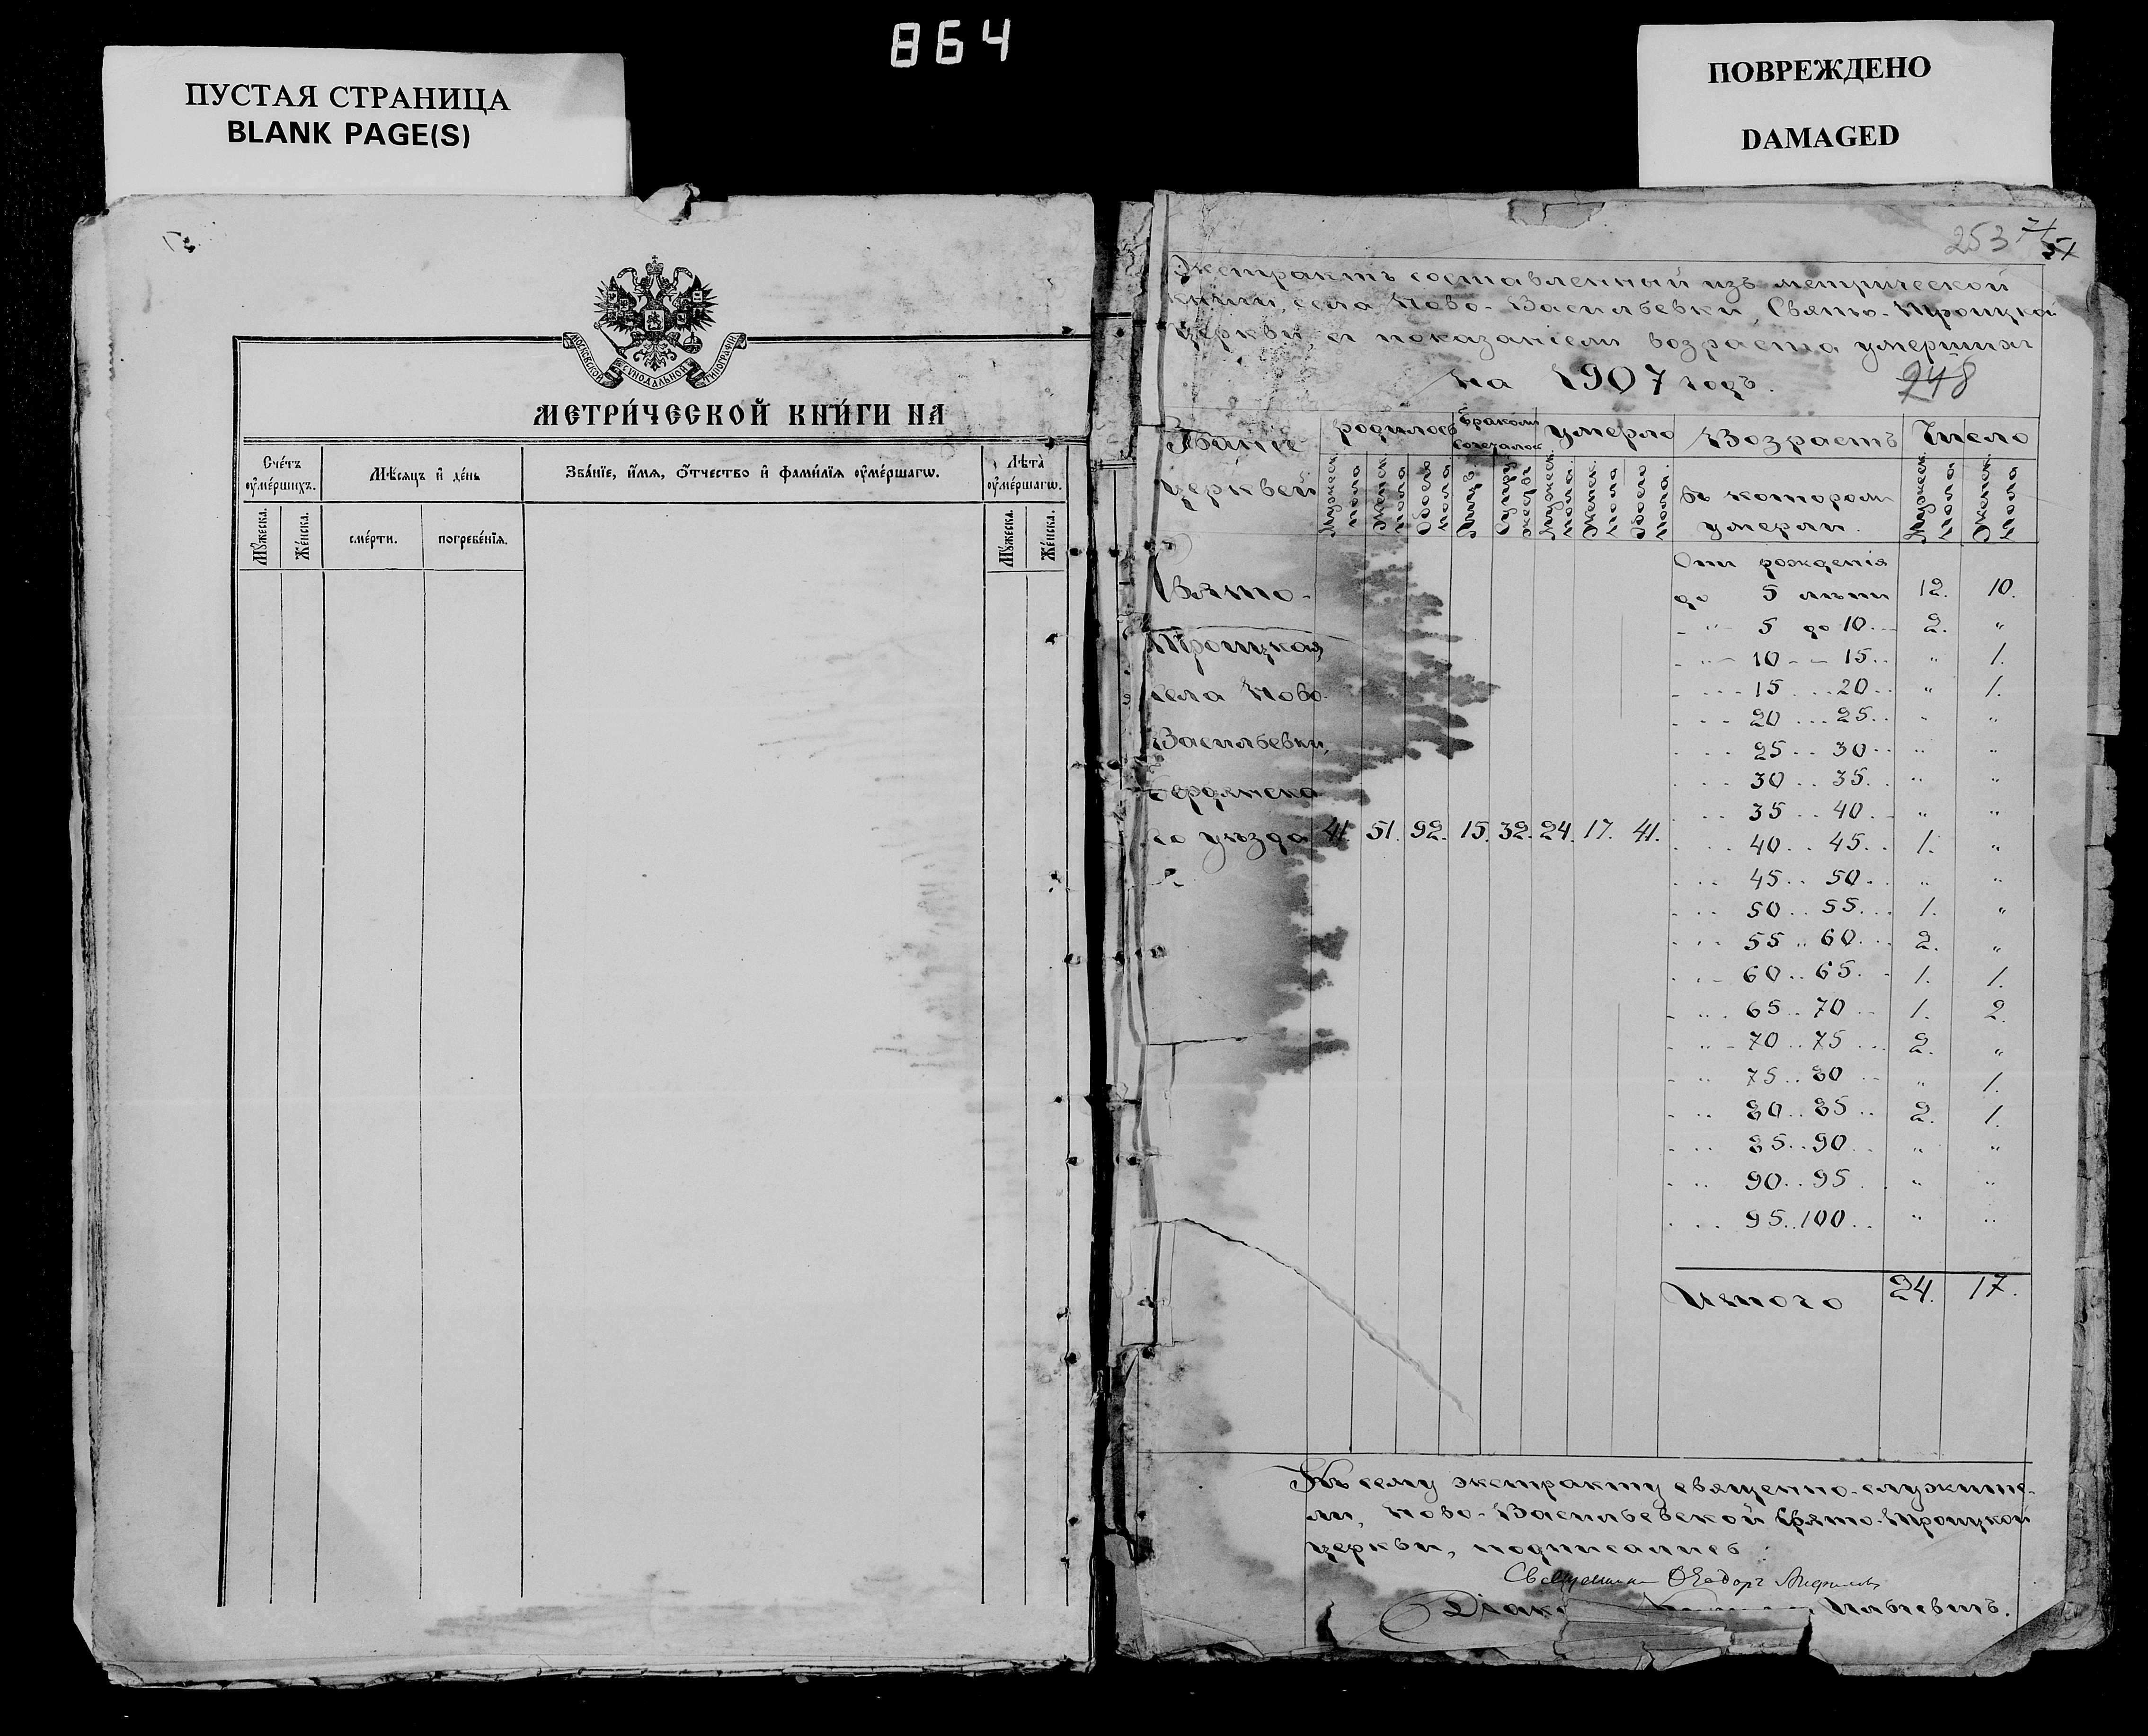 864
ПУСТАЯ СТРАНИЦА
BLANK PAGE(S)
ПОВРЕЖДЕНО
DAMAGED
МОСКОВСКОЙ СѴНОДАЛЬНОЙ ТИПОГРАФІИ
МЕТРИ́ЧЕСКОЙ КНИ́ГИ НА
Сче́тъ ᲂу҆ме́ршихъ.
Мѣ́сяцъ и҆ де́нь
Зва́нїе, и҆́мя, ѻ҆́тчество и҆ фами́лїя ᲂу҆ме́ршагѡ.
Лѣта̀ ᲂу҆ме́ршагѡ.
Мꙋ́жеска.
Же́нска.
сме́рти.
погребе́нїя.
Мꙋ́жеска.
Же́нска.
253
54
Экстрактъ составленный изъ метрической
книги, села Ново-Васильевки, Свято-Троицкой
церкви, съ показаніемъ возраста умершихъ
на 1907 годъ.
248
Званіе церквей
родилось
бракомъ сочеталось
умерло
Возрастъ
Число
въ которомъ умерли.
Мужеск. пола
Женск. пола
Обоего пола
Лицъ
Супружествъ
Мужеск. пола
Женск. пола
Обоего пола
Мужеск. пола
Женск. пола
Свято-
Троицкая
села Ново-
Васильевки,
Бердянска-
го уѣзда 41. 51. 92. 15. 32. 24. 17. 41.
Отъ рожденія
до 5 лѣтъ 12. 10.
- " - 5 до 10. 2. "
- " - 10 - - 15. " 1.
- " - 15 . . 20. " 1.
20 . . 25. " "
25 . . 30. " "
30 . . 35. " "
35 . . 40. " "
40 . . 45. 1. "
45 . . 50. " "
50 . . 55. 1. "
55 . . 60. 2. "
60 . . 65. 1. 1.
65 . . 70 1. 2.
70 . . 75 2. "
75 . . 80 " 1.
80 . . 85 2. 1.
85 . . 90 " "
90 . . 95 " "
95 . . 100 " "
Итого 24. 17.
Къ сему экстракту священно-служите-
ли, Ново-Васильевской Свято-Троицкой
церкви, подписались:
Священникъ Ѳеодоръ
Діак Ильчевичъ.